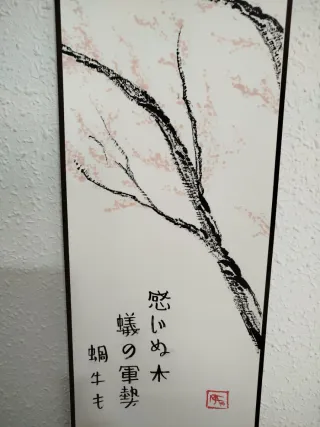 感じぬ木
蟻の軍勢
蝸牛も